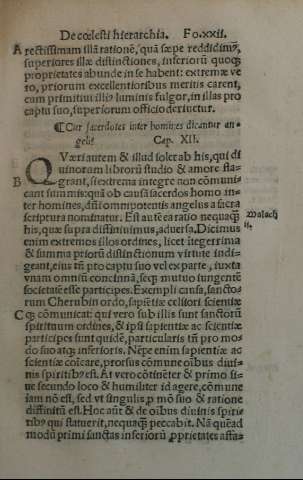 De cœlesti hierarchia. Fo.xxii.
A rectissimam illã rationẽ, quã sæpe reddidimꝰ,
superiores illæ distinctiones, inferiorũ quoqꝫ
proprietates abunde in se habent: extremæ ve
ro, priorum excellentioribus meritis carent,
cum primitiui illiꝰ luminis fulgor, in illas pro
captu suo, superiorum officio deriuetur.
¶ Cur sacerdotes inter homines dicantur an-
geli? Cap. XII.
QVæri autem & illud solet ab his, qui di
uinorum librorũ studio & amore fla-
B grant, si extrema integre non cõmuni-
cant summis: quã ob causã sacerdos homo in-
ter homines, dñi omnipotentis angelus a sacra
scriptura nominatur. Est autẽ ea ratio nequaqꝫ
his, quæ supra diffiniuimus, aduersa. Dicimus
Malach
ii.
enim extremos illos ordines, licet ĩtegerrima
& summa priorũ distinctionum virtute indi-
geant, eius tñ pro captu suo vel ex parte, iuxta
vnam omniũ concinnã, seqꝫ mutuo iungentẽ
societatẽ esse participes. Exempli causa, sancto-
rum Cherubin ordo, sapiẽtiæ celsiori scientiæ
C qꝫ cõmunicat: qui vero sub illis sunt sanctorũ
spirituum ordines, & ipsi sapientiæ ac scientiæ
participes sunt quidẽ, particularis tñ pro mo-
do suo atqꝫ inferioris. Nẽpe enim sapientiæ ac
scientiæ cõicare, prorsus cõmune oĩbus diui-
nis spiritibꝰ est. At vero cõtinẽter & primo si-
ue secundo loco & humiliter id agere, cõmune
iam nõ est, sed vt singulis, p mõ suo & ratione
diffinitũ est. Hoc aũt & de oĩbus diuinis spiri-
tibꝰ qui statuerit, nequaqꝫ peccabit. Nã quẽad
modũ primi sanctas inferiorũ pprietates affa-